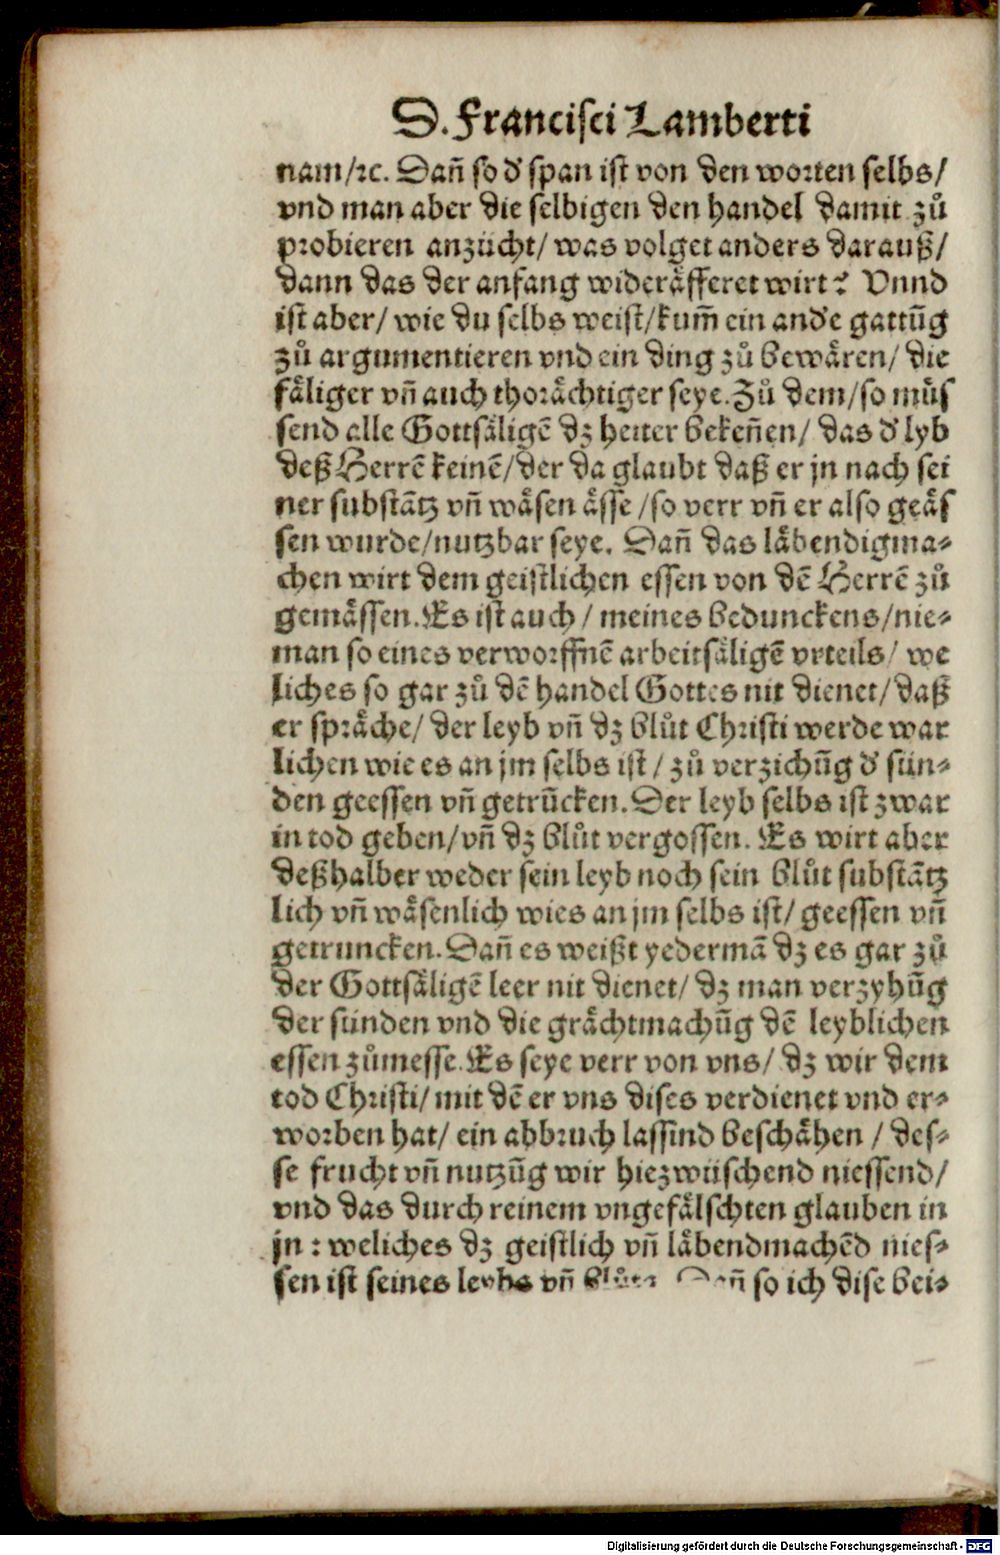 D. Francisci Lamberti
nam/ꝛc. Dañ so d' span ist von den worten selbs/
vnd man aber die selbigen den handel damit zů
probieren anzücht/ was volget anders darauß/
dann das der anfang wideräfferet wirt? Vnnd
ist aber/ wie du selbs weist/ kum̃ ein and'e gattũg
zů argumentieren vnd ein ding zů bewären/ die
fäliger vñ auch thorächtiger seye. Zů dem/ so můs
send alle Gottsäligẽ dz heiter bekeñen/ das d' lyb
deß Herrẽ keinẽ/ der da glaubt daß er jn nach sei
ner substãtz vñ wäsen ässe/ so verr vñ er also geäs
sen wurde/ nutzbar seye. Dañ das läbendigma⸗
chen wirt dem geistlichen essen von dẽ Herrẽ zů
gemässen. Es ist auch/ meines bedunckens/ nie⸗
man so eines verworffnẽ arbeitsäligẽ vrteils/ we
liches so gar zů dẽ handel Gottes nit dienet/ daß
er spräche/ der leyb vñ dz blůt Christi werde war
lichen wie es an jm selbs ist/ zů verzichũg d' sün⸗
den geessen vñ getrũcken. Der leyb selbs ist zwar
in tod geben/ vñ dz blůt vergossen. Es wirt aber
deßhalber weder sein leyb noch sein blůt substãtz
lich vñ wäsenlich wies an jm selbs ist/ geessen vñ
getruncken. Dañ es weißt yedermã dz es gar zů
der Gottsäligẽ leer nit dienet/ dz man verzyhũg
der sünden vnd die grächtmachũg dẽ leyblichen
essen zůmesse. Es seye verr von vns/ dz wir dem
tod Christi/ mit dẽ er vns dises verdienet vnd er⸗
worben hat/ ein abbruch lassind beschähen/ des⸗
se frucht vñ nutzũg wir hiezwüschend niessend/
vnd das durch reinem vngefälschten glauben in
jn: weliches dz geistlich vñ läbendmachẽd nies⸗
sen ist seines leybs vñ blůts. Dañ so ich dise bei⸗
Digitalisierung gefördert durch die Deutsche Forschungsgemeinschaft - DFG